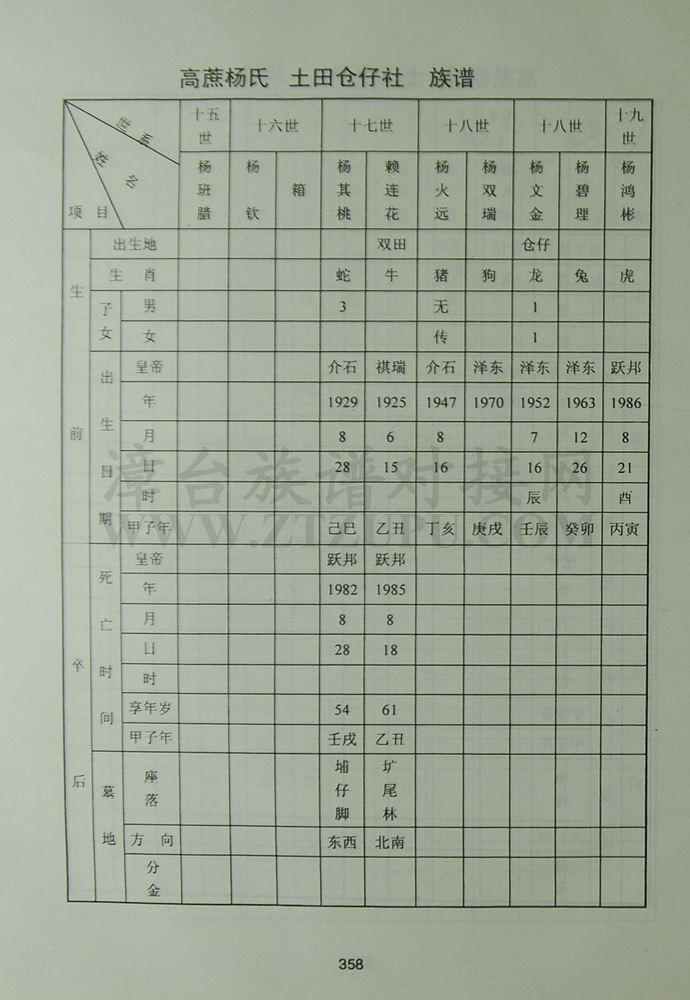 高蔗杨氏 土田仓仔社 族谱
世系 姓名 项目 十五世 十六世 十七世 十八世 十八世 十九世
杨班腊 杨钦 箱 杨其桃 赖连花 杨火远 杨双瑞 杨文金 杨碧理 杨鸿彬
生前 出生地 双田 仓仔
生肖 蛇 牛 猪 狗 龙 兔 虎
子女 男 3 无 1
女 传 1
出生日期 皇帝 介石 祺瑞 介石 泽东 泽东 泽东 跃邦
年 1929 1925 1947 1970 1952 1963 1986
月 8 6 8 7 12 8
日 28 15 16 16 26 21
时 辰 酉
甲子年 己巳 乙丑 丁亥 庚戌 壬辰 癸卯 丙寅
卒后 死亡时间 皇帝 跃邦 跃邦
年 1982 1985
月 8 8
日 28 18
时
享年岁 54 61
甲子年 壬戌 乙丑
墓地 座落 埔仔脚 圹尾林
方向 东西 北南
分金
漳台族谱对接网
WWW.ZTZUPU.COM
358